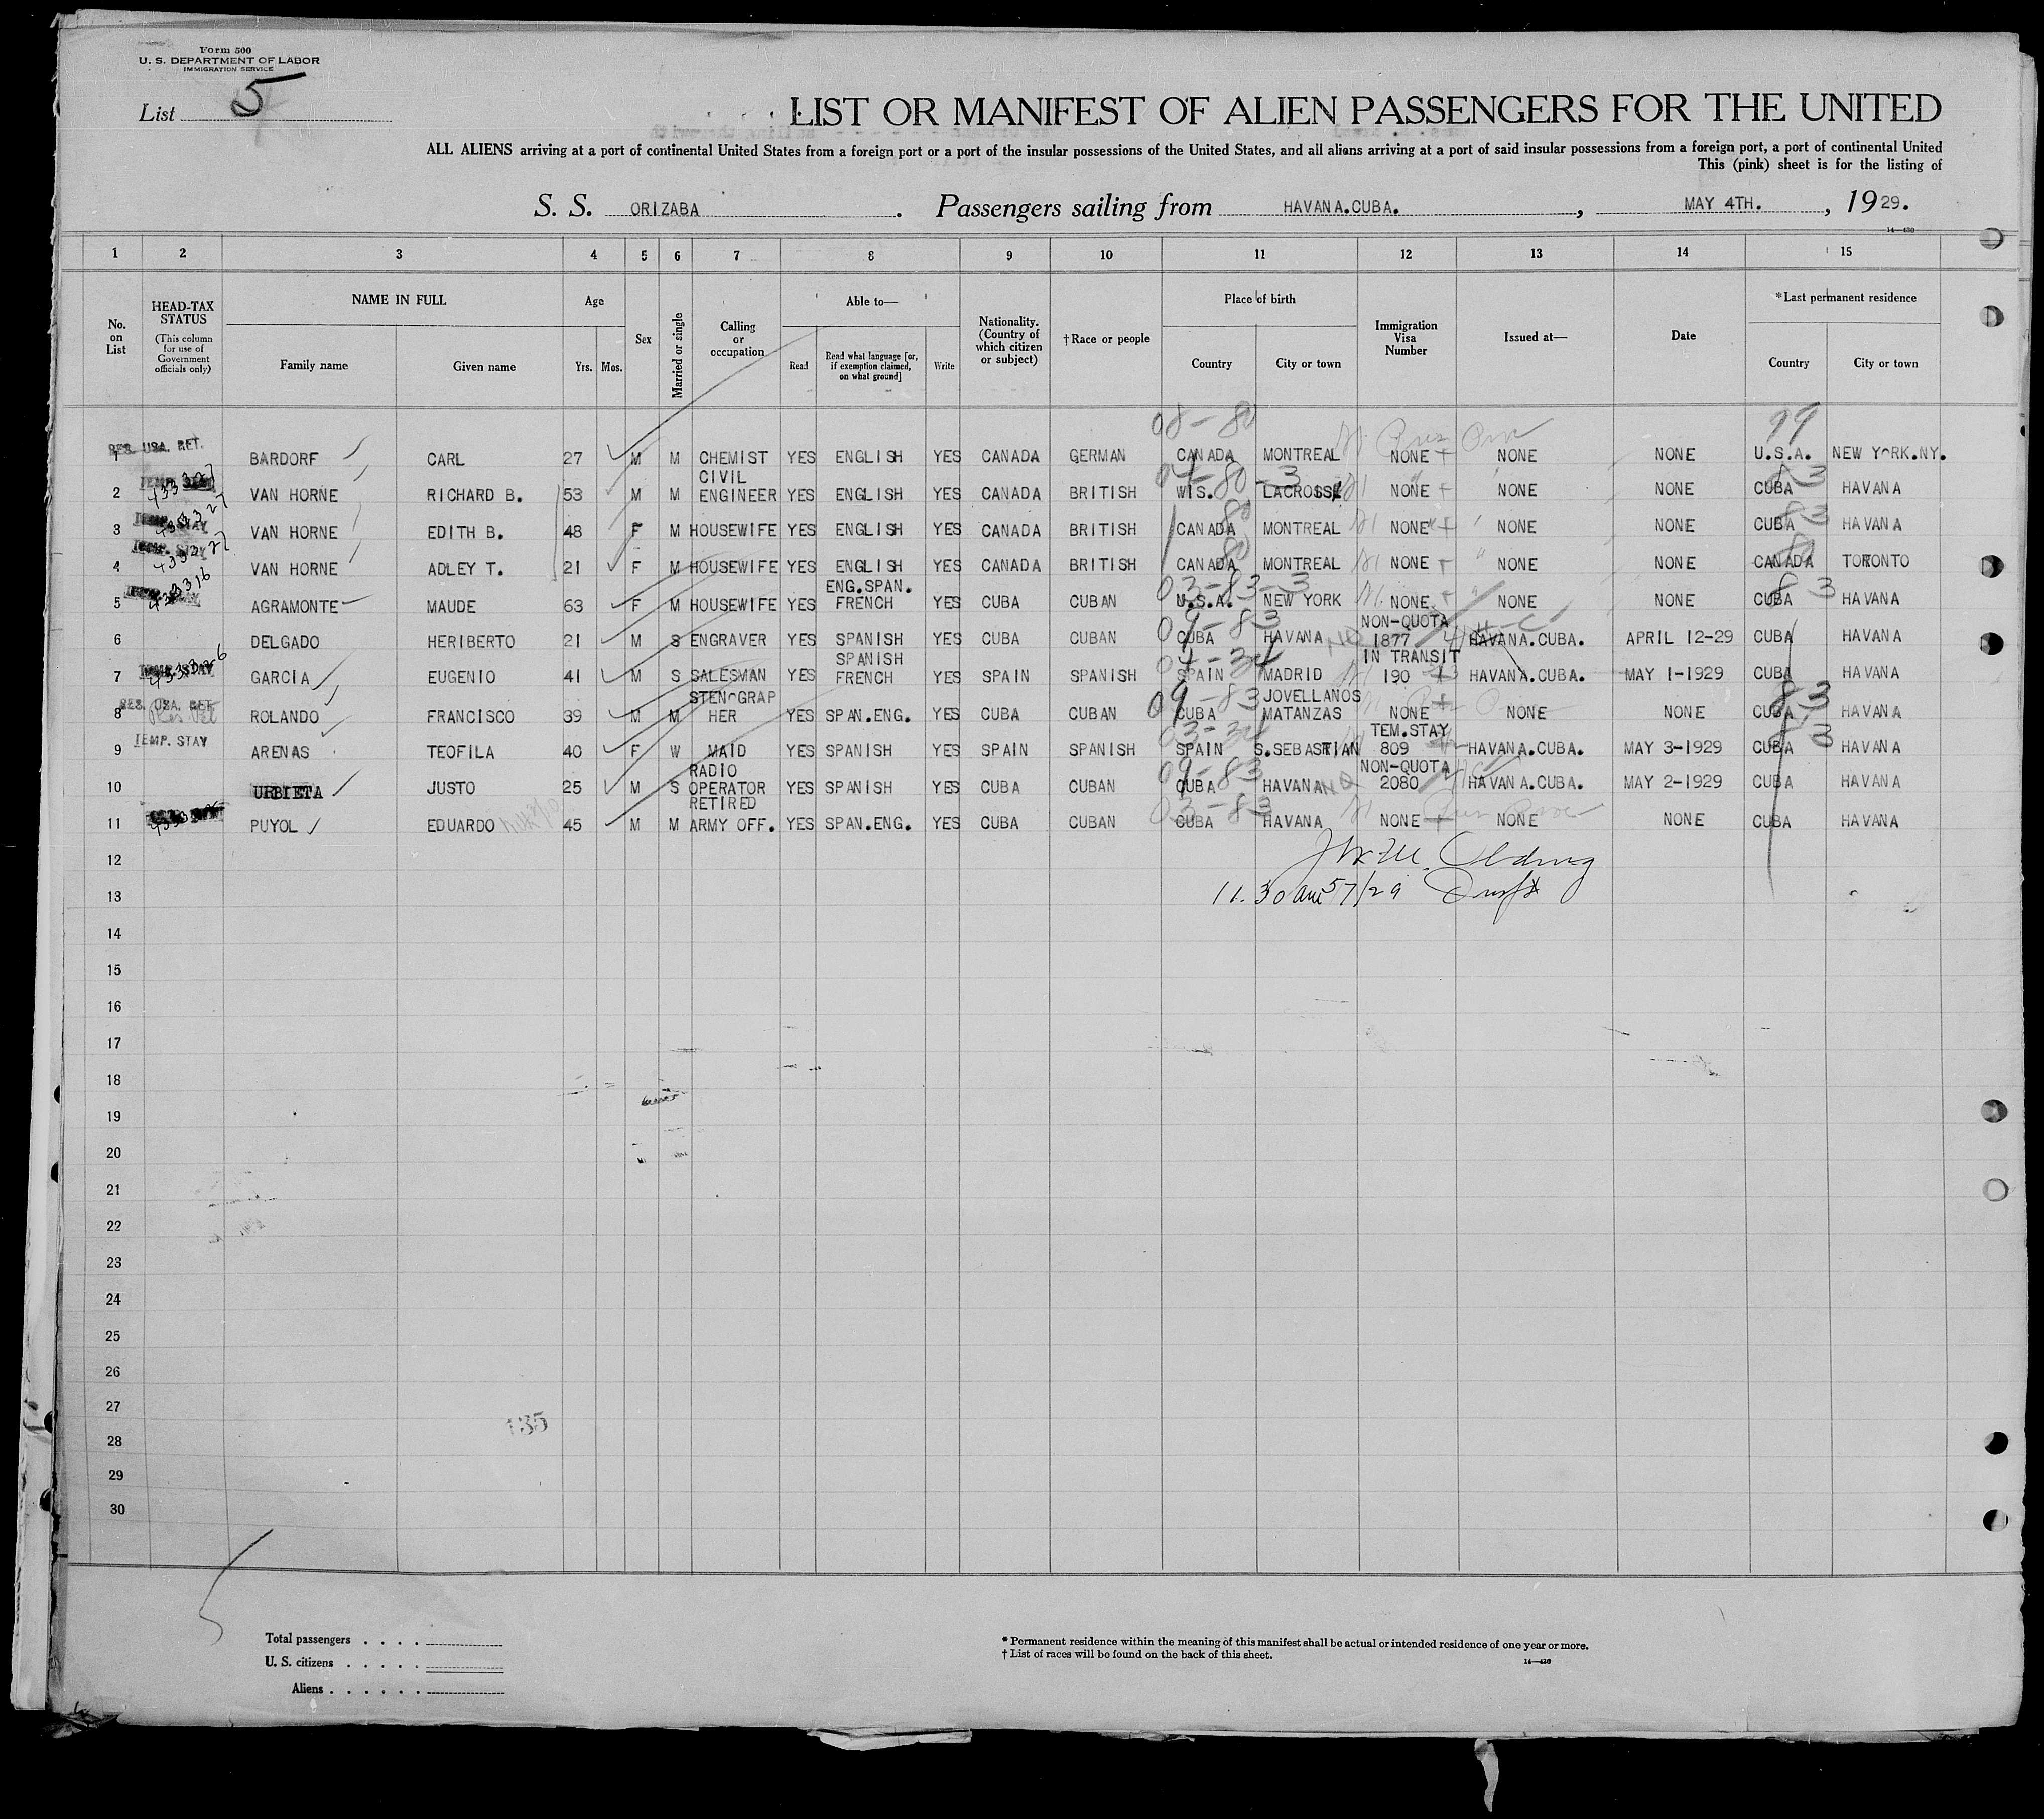 Form 500
U. S. DEPARTMENT OF LABOR
IMMIGRATION SERVICE
List 5
LIST OR MANIFEST OF ALIEN PASSENGERS FOR THE UNITED
ALL ALIENS arriving at a port of continental United States from a foreign port or a port of the insular possessions of the United States, and all aliens arriving at a port of said insular possessions from a foreign port, a port of continental United
This (pink) sheet is for the listing of
S. S. ORIZABA. Passengers sailing from HAVANA.CUBA., MAY 4TH., 1929.
14—430
1 2 3 4 5 6 7 8 9 10 11 12 13 14 15
No. on List
HEAD-TAX STATUS (This column for use of Government officials only)
NAME IN FULL
Family name Given name
Age
Yrs. Mos.
Sex
Married or single
Calling or occupation
Able to—
Read
Read what language [or, if exemption claimed, on what ground]
Write
Nationality. (Country of which citizen or subject)
†Race or people
Place of birth
Country City or town
Immigration Visa Number
Issued at—
Date
*Last permanent residence
Country City or town
08-80 99
RES. USA. RET.
1 BARDORF CARL 27 M M CHEMIST YES ENGLISH YES CANADA GERMAN CANADA MONTREAL NONE NONE NONE U.S.A. NEW YORK.NY.
CIVIL
2 VAN HORNE RICHARD B. 53 M M ENGINEER YES ENGLISH YES CANADA BRITISH WIS. LACROSSE NONE NONE NONE CUBA HAVANA
3 VAN HORNE EDITH B. 48 F M HOUSEWIFE YES ENGLISH YES CANADA BRITISH CANADA MONTREAL NONE NONE NONE CUBA HAVANA
4 VAN HORNE ADLEY T. 21 F M HOUSEWIFE YES ENGLISH YES CANADA BRITISH CANADA MONTREAL NONE NONE NONE CANADA TORONTO
ENG.SPAN. 03-83-3
5 AGRAMONTE MAUDE 63 F M HOUSEWIFE YES FRENCH YES CUBA CUBAN U.S.A. NEW YORK NONE NONE NONE CUBA HAVANA
09-83 NON-QUOTA
6 DELGADO HERIBERTO 21 M S ENGRAVER YES SPANISH YES CUBA CUBAN CUBA HAVANA 1877 HAVANA.CUBA. APRIL 12-29 CUBA HAVANA
SPANISH IN TRANSIT
7 GARCIA EUGENIO 41 M S SALESMAN YES FRENCH YES SPAIN SPANISH SPAIN MADRID 190 HAVANA.CUBA. MAY 1-1929 CUBA HAVANA
RES. USA. RET. STENOGRAP 09-83 JOVELLANOS 83
8 ROLANDO FRANCISCO 39 M M HER YES SPAN.ENG. YES CUBA CUBAN CUBA MATANZAS NONE NONE NONE CUBA HAVANA
TEMP. STAY TEM.STAY
9 ARENAS TEOFILA 40 F W MAID YES SPANISH YES SPAIN SPANISH SPAIN S.SEBASTIAN 809 HAVANA.CUBA. MAY 3-1929 CUBA HAVANA
RADIO 09-83 NON-QUOTA
10 URBIETA JUSTO 25 M S OPERATOR YES SPANISH YES CUBA CUBAN CUBA HAVANA 2080 HAVANA.CUBA. MAY 2-1929 CUBA HAVANA
RETIRED 03-83
11 PUYOL EDUARDO 45 M M ARMY OFF. YES SPAN.ENG. YES CUBA CUBAN CUBA HAVANA NONE NONE NONE CUBA HAVANA
12
13 11.30 am 5/7/29
14
15
16
17
18
19
20
21
22
23
24
25
26
27
135
28
29
30
Total passengers
U. S. citizens
Aliens
* Permanent residence within the meaning of this manifest shall be actual or intended residence of one year or more.
† List of races will be found on the back of this sheet.
14—430